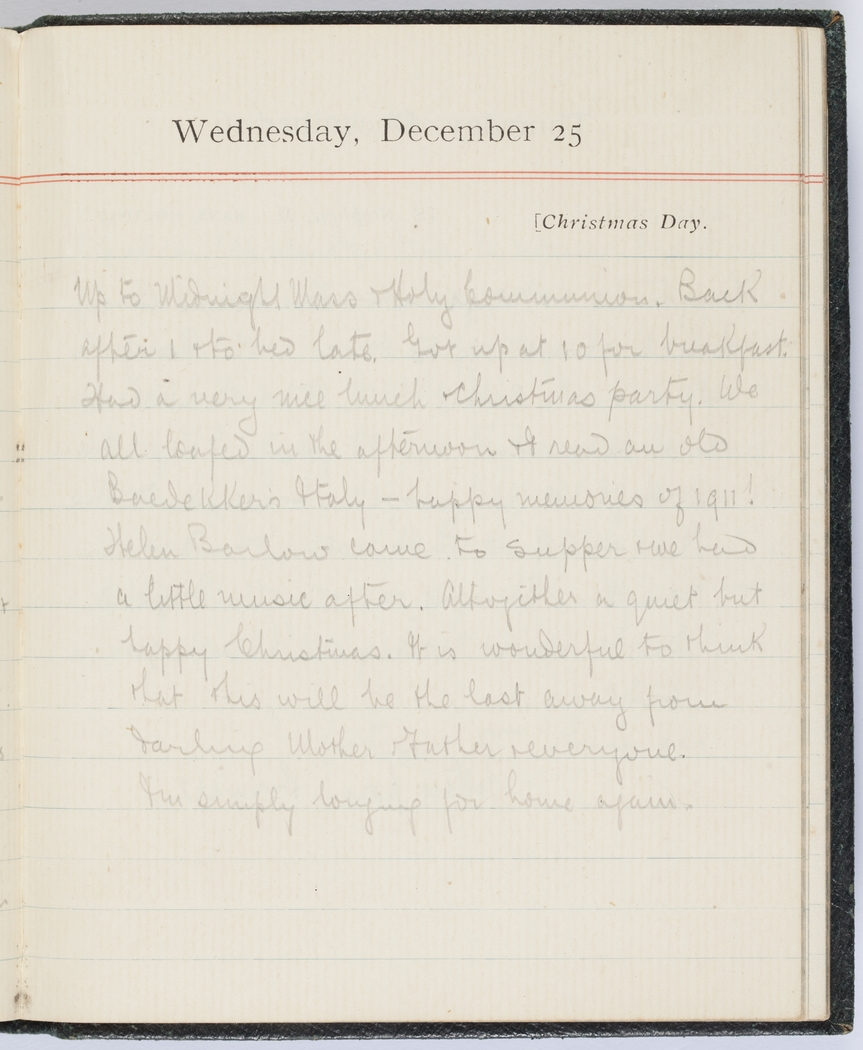 Wednesday, December 25
[Christmas Day.
Up to Midnight Mass & Holy Communion. Back
after 1 & to bed late. Got up at 10 for breakfast.
Had a very nice lunch & Christmas party. We
all loafed in the afternoon & I read an old
Baedekker's Italy – happy memories of 1911!
Helen Barlow came to supper & we had
a little music after. Altogether a quiet but
happy Christmas. It is wonderful to think
that this will be the last away from
darling Mother & Father & everyone.
I'm simply longing for home again.